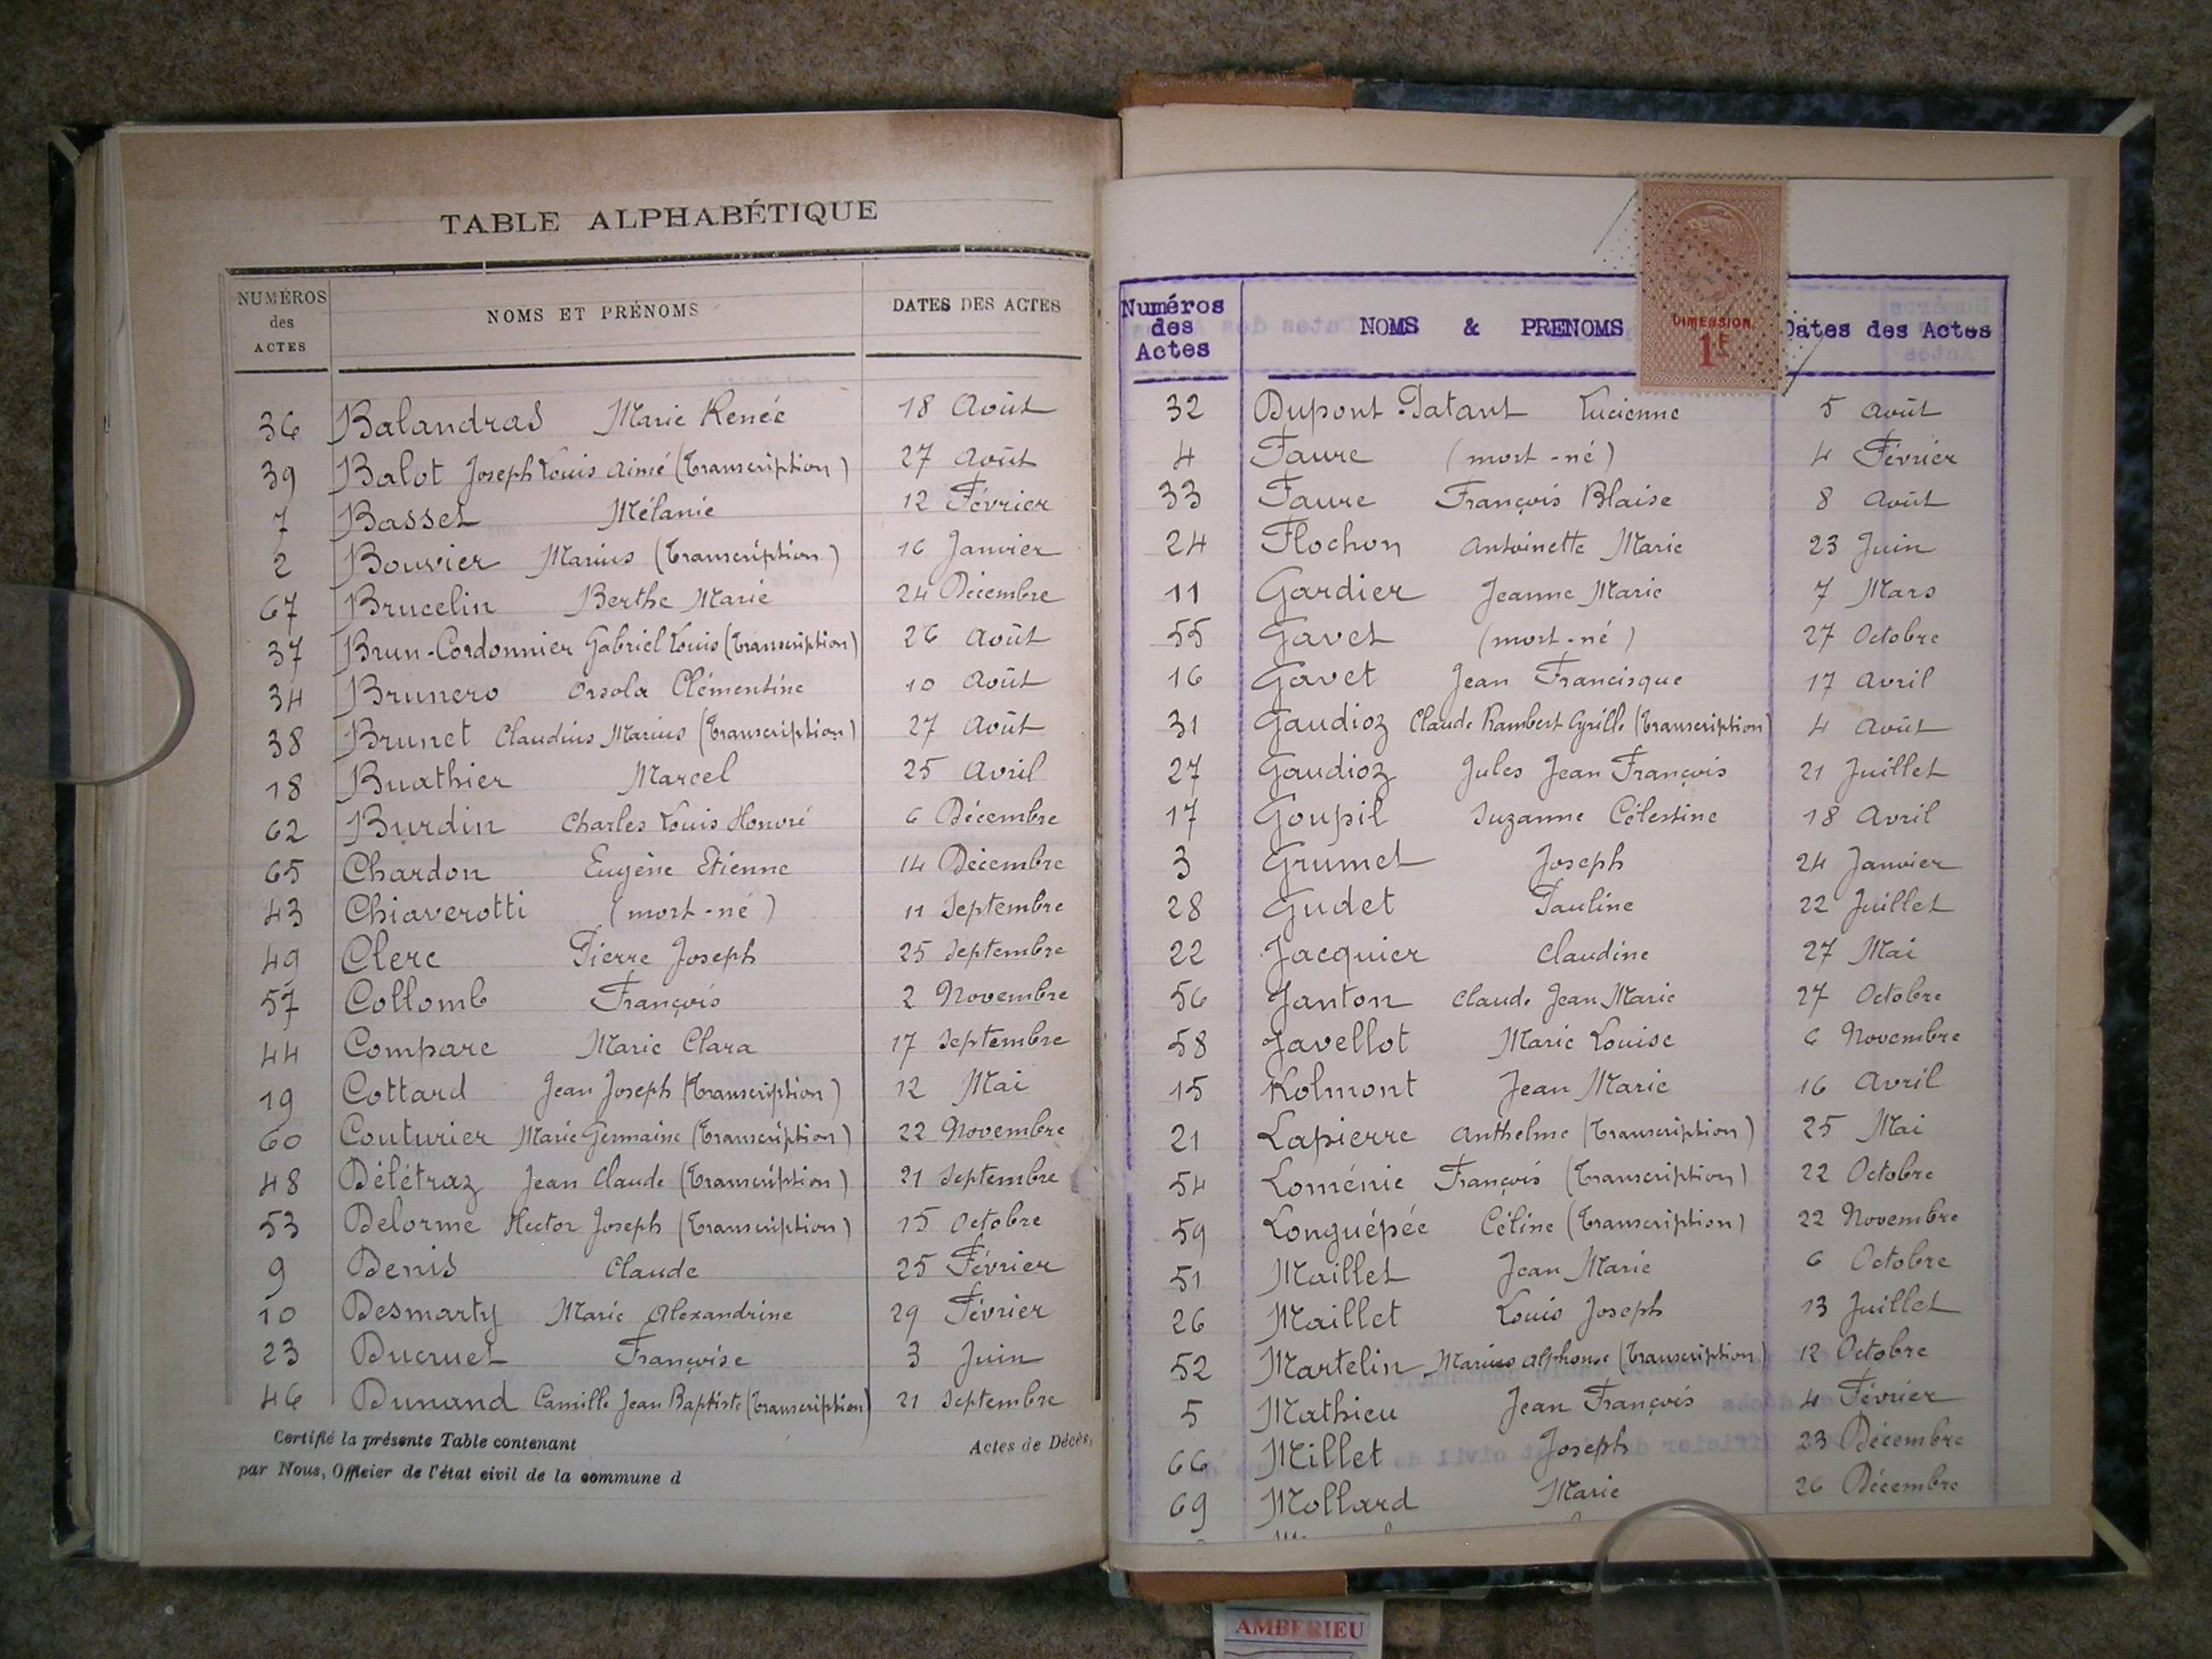 TABLE ALPHABÉTIQUE
NUMÉROS des ACTES NOMS ET PRÉNOMS DATES DES ACTES
36 Balandras Marie Renée 18 Août
39 Balot Joseph Louis Aimé (Transcription) 27 Août
7 Basset Mélanie 12 Février
2 Bouvier Marius (Transcription) 16 Janvier
67 Brucelin Berthe Marie 24 Décembre
37 Brun-Cordonnier Gabriel Louis (Transcription) 26 Août
34 Brunero Orsola Clémentine 10 Août
38 Brunet Claudius Marius (Transcription) 27 Août
18 Buathier Marcel 25 Avril
62 Burdin Charles Louis Honoré 6 Décembre
65 Chardon Eugène Etienne 14 Décembre
43 Chiaverotti (mort-né) 11 Septembre
49 Clerc Pierre Joseph 25 Septembre
57 Collomb François 2 Novembre
44 Compare Marie Clara 17 Septembre
19 Cottard Jean Joseph (Transcription) 12 Mai
60 Couturier Marie Germaine (Transcription) 22 Novembre
48 Délétraz Jean Claude (Transcription) 21 Septembre
53 Delorme Hector Joseph (Transcription) 15 Octobre
9 Denis Claude 25 Février
10 Desmarty Marie Alexandrine 29 Février
23 Ducruet Françoise 3 Juin
46 Dunand Camille Jean Baptiste (Transcription) 21 Septembre
Certifié la présente Table contenant Actes de Décès,
par Nous, Officier de l'état civil de la commune d
Numéros des Actes NOMS & PRENOMS Dates des Actes
DIMENSION
1F
32 Dupont-Patant Lucienne 5 Août
4 Faure (mort-né) 4 Février
33 Faure François Blaise 8 Août
24 Flochon Antoinette Marie 23 Juin
11 Gardier Jeanne Marie 7 Mars
55 Gavet (mort-né) 27 Octobre
16 Gavet Jean Francisque 17 Avril
31 Gaudioz Claude Rambert Cyrille (Transcription) 4 Août
27 Gaudioz Jules Jean François 21 Juillet
17 Goupil Suzanne Célestine 18 Avril
3 Grumet Joseph 24 Janvier
28 Gudet Pauline 22 Juillet
22 Jacquier Claudine 27 Mai
56 Janton Claude Jean Marie 27 Octobre
58 Javellot Marie Louise 6 Novembre
15 Kolmont Jean Marie 16 Avril
21 Lapierre Anthelme (Transcription) 25 Mai
54 Loménie François (Transcription) 22 Octobre
59 Longuépée Céline (Transcription) 22 Novembre
51 Maillet Jean Marie 6 Octobre
26 Maillet Louis Joseph 13 Juillet
52 Martelin Marius Alphonse (Transcription) 12 Octobre
5 Mathieu Jean François 4 Février
66 Millet Joseph 23 Décembre
69 Mollard Marie 26 Décembre
AMBERIEU